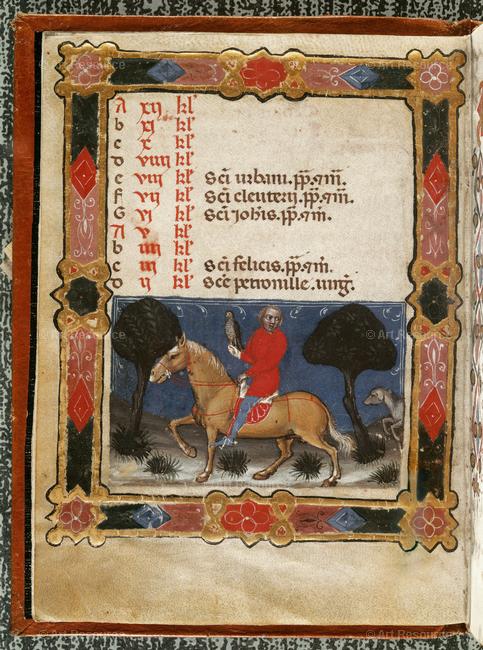 A xij kl'
b xj kl'
c x kl'
d viiij kl'
e viij kl' Sci urbani. pp. ⁊ m.
f vij kl' Sci eleuterij. pp. ⁊ m.
G vj kl' Sci iohis. pp. ⁊ m.
A v kl'
b iiij kl'
c iij kl' Sci felicis. pp. ⁊ m.
d ij kl' Sce petronille. uirg.
© Art Resource